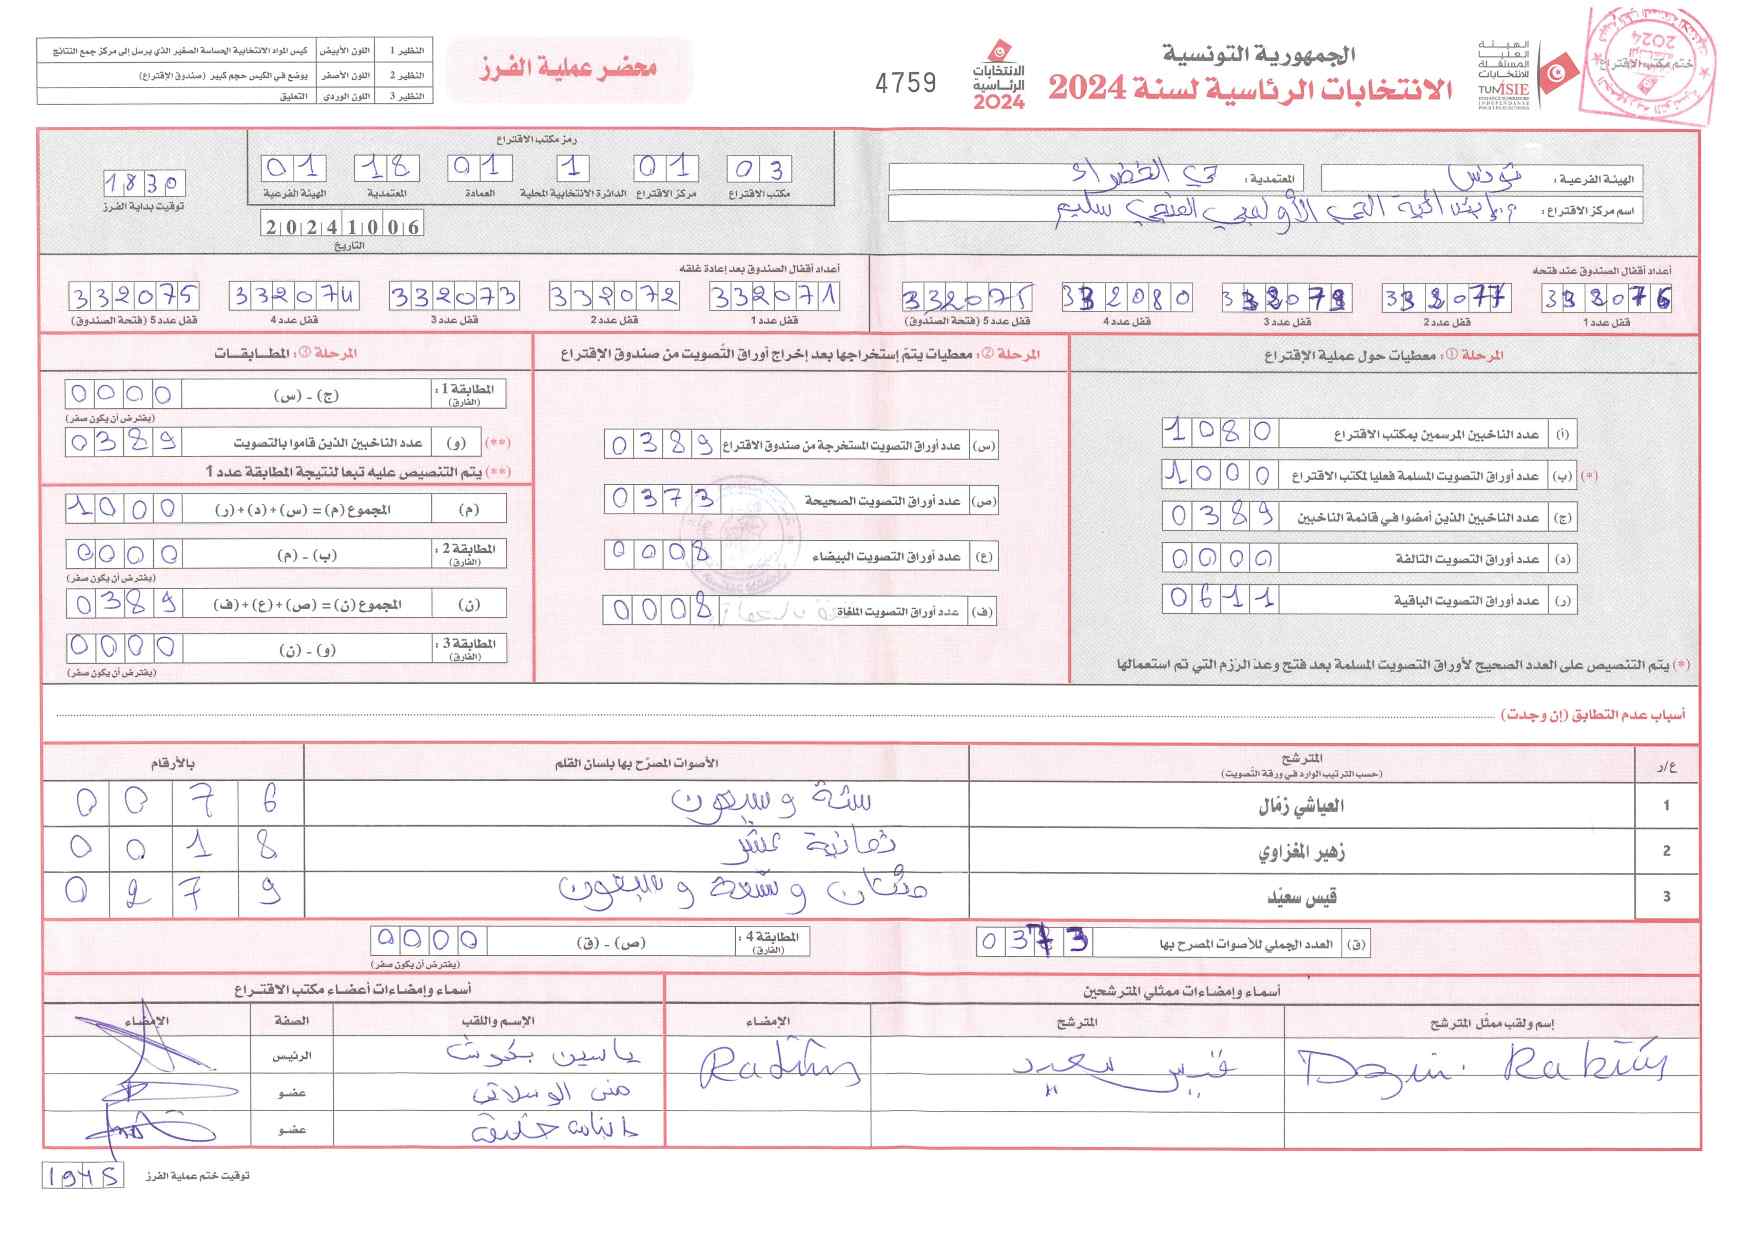 الجمهورية التونسية
الانتخابات الرئاسية لسنة 2024
الهيئة العليا المستقلة للانتخابات
TUNISIE
ختم مكتب الاقتراع
الانتخابات الرئاسية 2024
4759
محضر عملية الفرز
النظير 1 اللون الأبيض كيس المواد الانتخابية الحساسة الصغير الذي يرسل إلى مركز جمع النتائج
النظير 2 اللون الأصفر يوضع في الكيس حجم كبير (صندوق الإقتراع)
النظير 3 اللون الوردي التعليق
الهيئة الفرعية : تونس
المعتمدية : حي الخضراء
اسم مركز الاقتراع : الحي الأولمبي سليم
رمز مكتب الاقتراع
03 مكتب الاقتراع
01 مركز الاقتراع
1 الدائرة الانتخابية المحلية
01 العمادة
18 المعتمدية
01 الهيئة الفرعية
20241006
التاريخ
1830
توقيت بداية الفرز
أعداد أقفال الصندوق عند فتحه
332076 332077 332079 332080 332075
قفل عدد 1 قفل عدد 2 قفل عدد 3 قفل عدد 4 قفل عدد 5 (فتحة الصندوق)
أعداد أقفال الصندوق بعد إعادة غلقه
332071 332072 332073 332074 332075
قفل عدد 1 قفل عدد 2 قفل عدد 3 قفل عدد 4 قفل عدد 5 (فتحة الصندوق)
المرحلة ① : معطيات حول عملية الإقتراع
(أ) عدد الناخبين المرسمين بمكتب الاقتراع 1080
(*) (ب) عدد أوراق التصويت المسلمة فعليا لمكتب الاقتراع 1000
(ج) عدد الناخبين الذين أمضوا في قائمة الناخبين 0389
(د) عدد أوراق التصويت التالفة 0000
(ر) عدد أوراق التصويت الباقية 0611
(*) يتم التنصيص على العدد الصحيح لأوراق التصويت المسلمة بعد فتح وعد الرزم التي تم استعمالها
المرحلة ② : معطيات يتم إستخراجها بعد إخراج أوراق التصويت من صندوق الإقتراع
(س) عدد أوراق التصويت المستخرجة من صندوق الاقتراع 0389
(ص) عدد أوراق التصويت الصحيحة 0373
(ع) عدد أوراق التصويت البيضاء 0008
(ف) عدد أوراق التصويت الملغاة 0008
المرحلة ③ : المطابقات
المطابقة 1 : (الفارق) (ج) - (س) 0000
(يفترض أن يكون صفر)
(**) (و) عدد الناخبين الذين قاموا بالتصويت 0389
(**) يتم التنصيص عليه تبعا لنتيجة المطابقة عدد 1
(م) المجموع (م) = (س) + (د) + (ر) 1000
المطابقة 2 : (الفارق) (ب) - (م) 0000
(يفترض أن يكون صفر)
(ن) المجموع (ن) = (ص) + (ع) + (ف) 0389
المطابقة 3 : (الفارق) (و) - (ن) 0000
(يفترض أن يكون صفر)
أسباب عدم التطابق (إن وجدت)
ع/ر المترشح (حسب الترتيب الوارد في ورقة التصويت) الأصوات المصرّح بها بلسان القلم بالأرقام
1 العياشي زمّال ستة وسبعون 0076
2 زهير المغزاوي ثمانية عشر 0018
3 قيس سعيّد مئتان وتسعة وسبعون 0279
(ق) العدد الجملي للأصوات المصرح بها 0373
المطابقة 4 : (الفارق) (ص) - (ق) 0000
(يفترض أن يكون صفر)
أسماء وإمضاءات ممثلي المترشحين
إسم ولقب ممثّل المترشح المترشح الإمضاء
قيس سعيد
أسماء وإمضاءات أعضاء مكتب الاقتراع
الإسم واللقب الصفة الإمضاء
ياسين الرئيس
منى الوسلاتي عضو
عضو
توقيت ختم عملية الفرز 1945